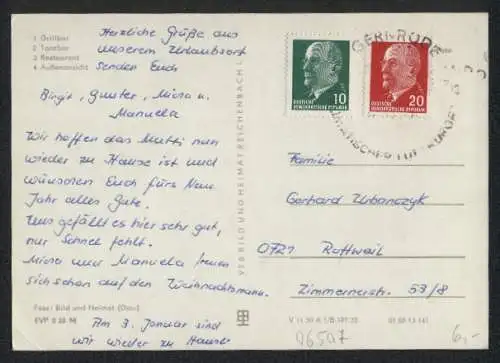 1 Grillbar
2 Tanzbar
3 Restaurant
4 Außenansicht
Herzliche Grüße aus
unserem Urlaubsort
senden Euch
Birgit, Gunter, Mirra u.
Manuela
Wir hoffen das Mutti nun
wieder zu Hause ist und
wünschen Euch fürs Neue
Jahr alles Gute.
Uns gefällt es hier sehr gut,
nur Schnee fehlt.
Mirra und Manuela freuen
sich schon auf den Weihnachtsmann.
Foto: Bild und Heimat
EVP 0 20 M
Am 3. Januar sind
wir wieder zu Hause
VEB BILD UND HEIMAT REICHENBACH
10
DEUTSCHE
DEMOKRATISCHE REPUBLIK
20
DEUTSCHE
DEMOKRATISCHE REPUBLIK
GERNRODE
KURORT
Familie
Gerhard Urbanczyk
0721 Rottweil
Zimmererstr. 53/8
06507
6,-